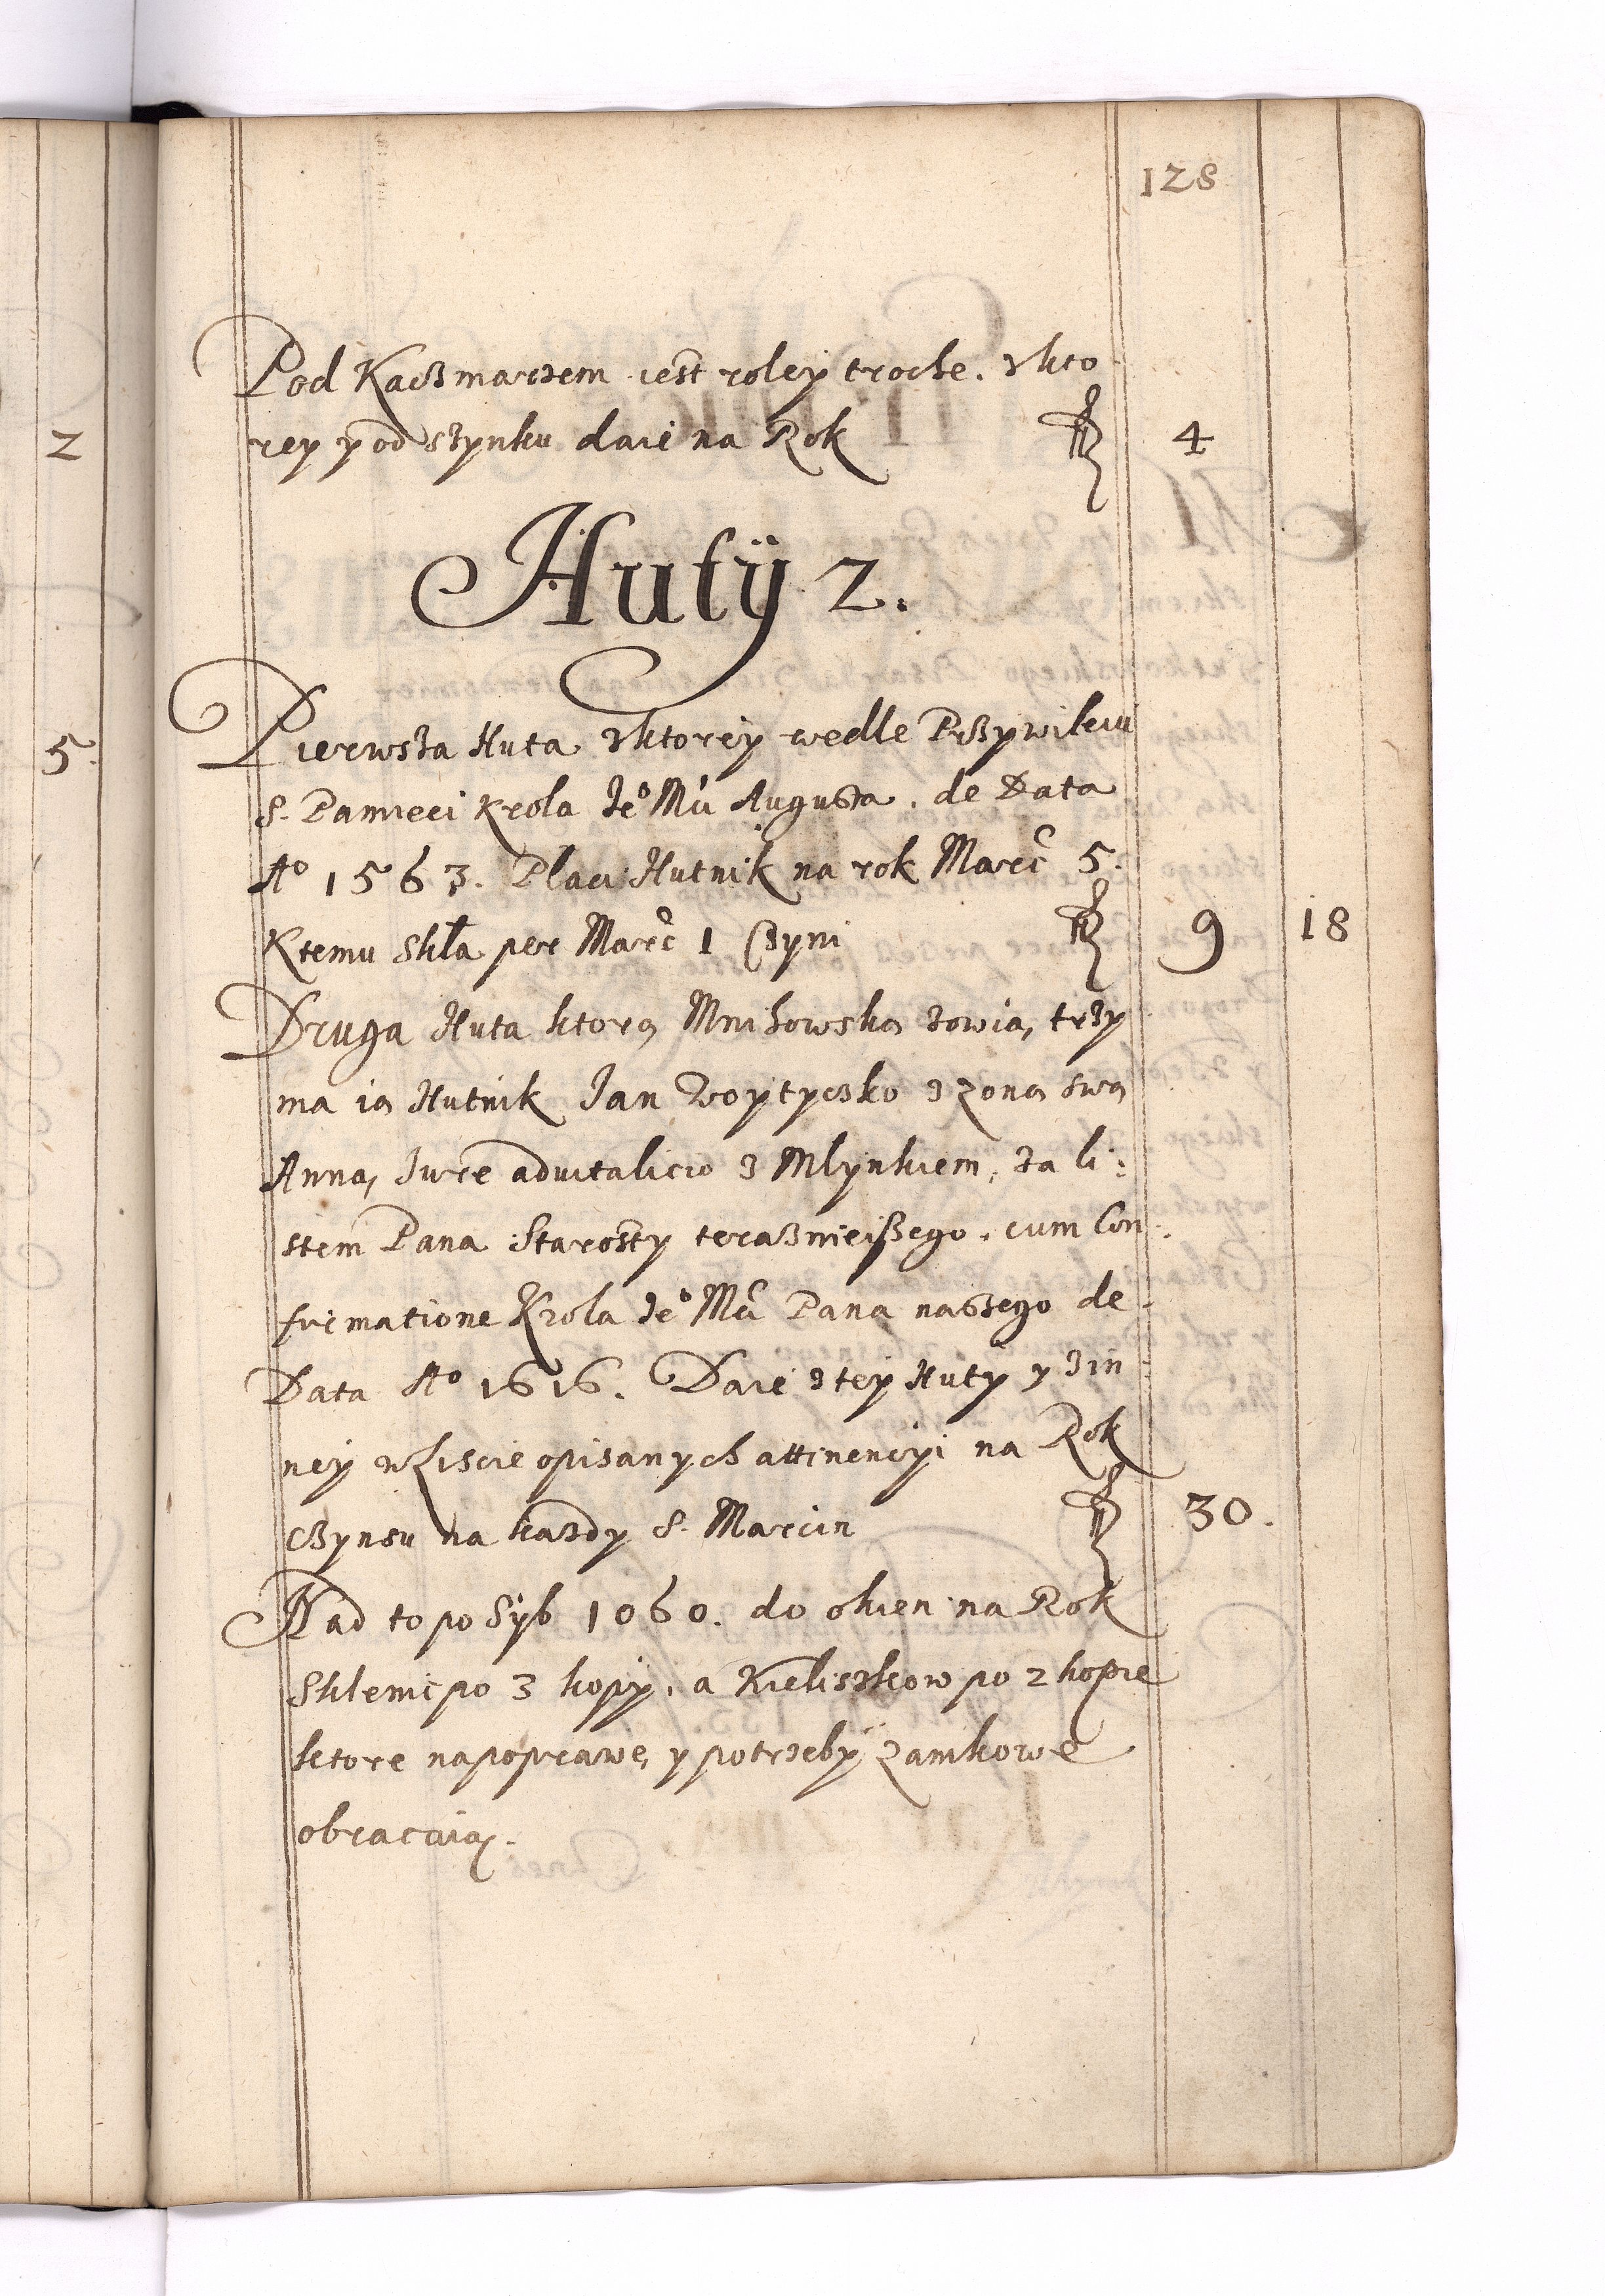 128
Pod Kaczmarzem iest roley troche. z kto
rey y od szynku daie na Rok fl 4
Huty 2.
Pierwsza Huta z ktorey wedle Przywileiu
S. Pamieci Krola Je° Mci Augusta. de Data
A° 1563. Placi Hutnik na rok Marc 5.
Ktemu Skła per Marc 1 Czyni fl 9 18
Druga Huta ktorą Mnihowską zowią, trzy
ma ią Hutnik Jan Woytyczko z zoną swą
Anną, Jure aduitalicio z Mlynkiem, za li:
stem Pana Starosty teraznieiszego. cum Con
firmatione Krola Je° Mci Pana naszego de
Data A° 1616. Daie z tey Huty y z in
ney w Liscie opisanych attinencyi na Rok
Czynsu na kazdy S. Marcin fl 30.
Nad to po Syb 1060. do okien na Rok
Sklenic po 3 kopy, a Kieliszkow po 2 kopie
ktore na poprawę, y potrzeby zamkowe
obracaią.
2
5.